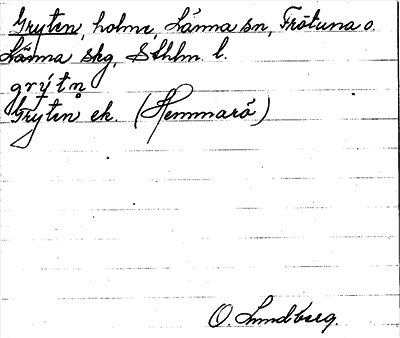 Gryten, holme, Länna sn, Frötuna o.
Länna skg, Sthlm. l.
grýtn̥
Gryten ek. (Hemmarö)
O. Lundberg.